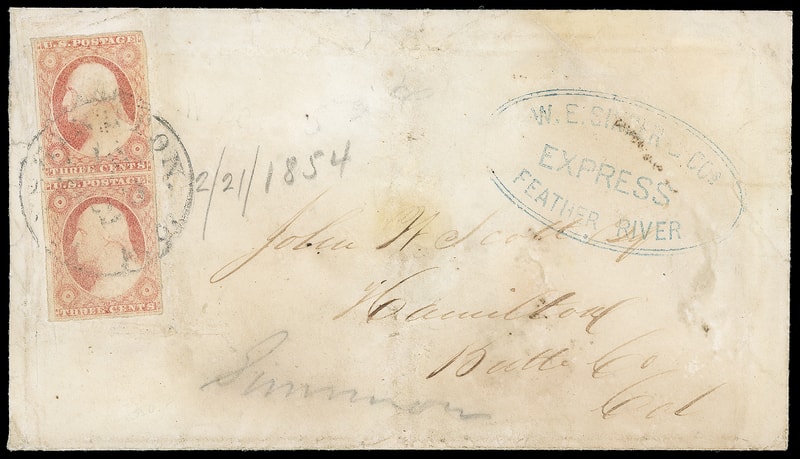 U.S. POSTAGE
THREE CENTS
U.S. POSTAGE
THREE CENTS
2/21/1854
W. E. & COS
EXPRESS
FEATHER RIVER
John W. Scott Esq
Hamilton
Butte Co
Cal